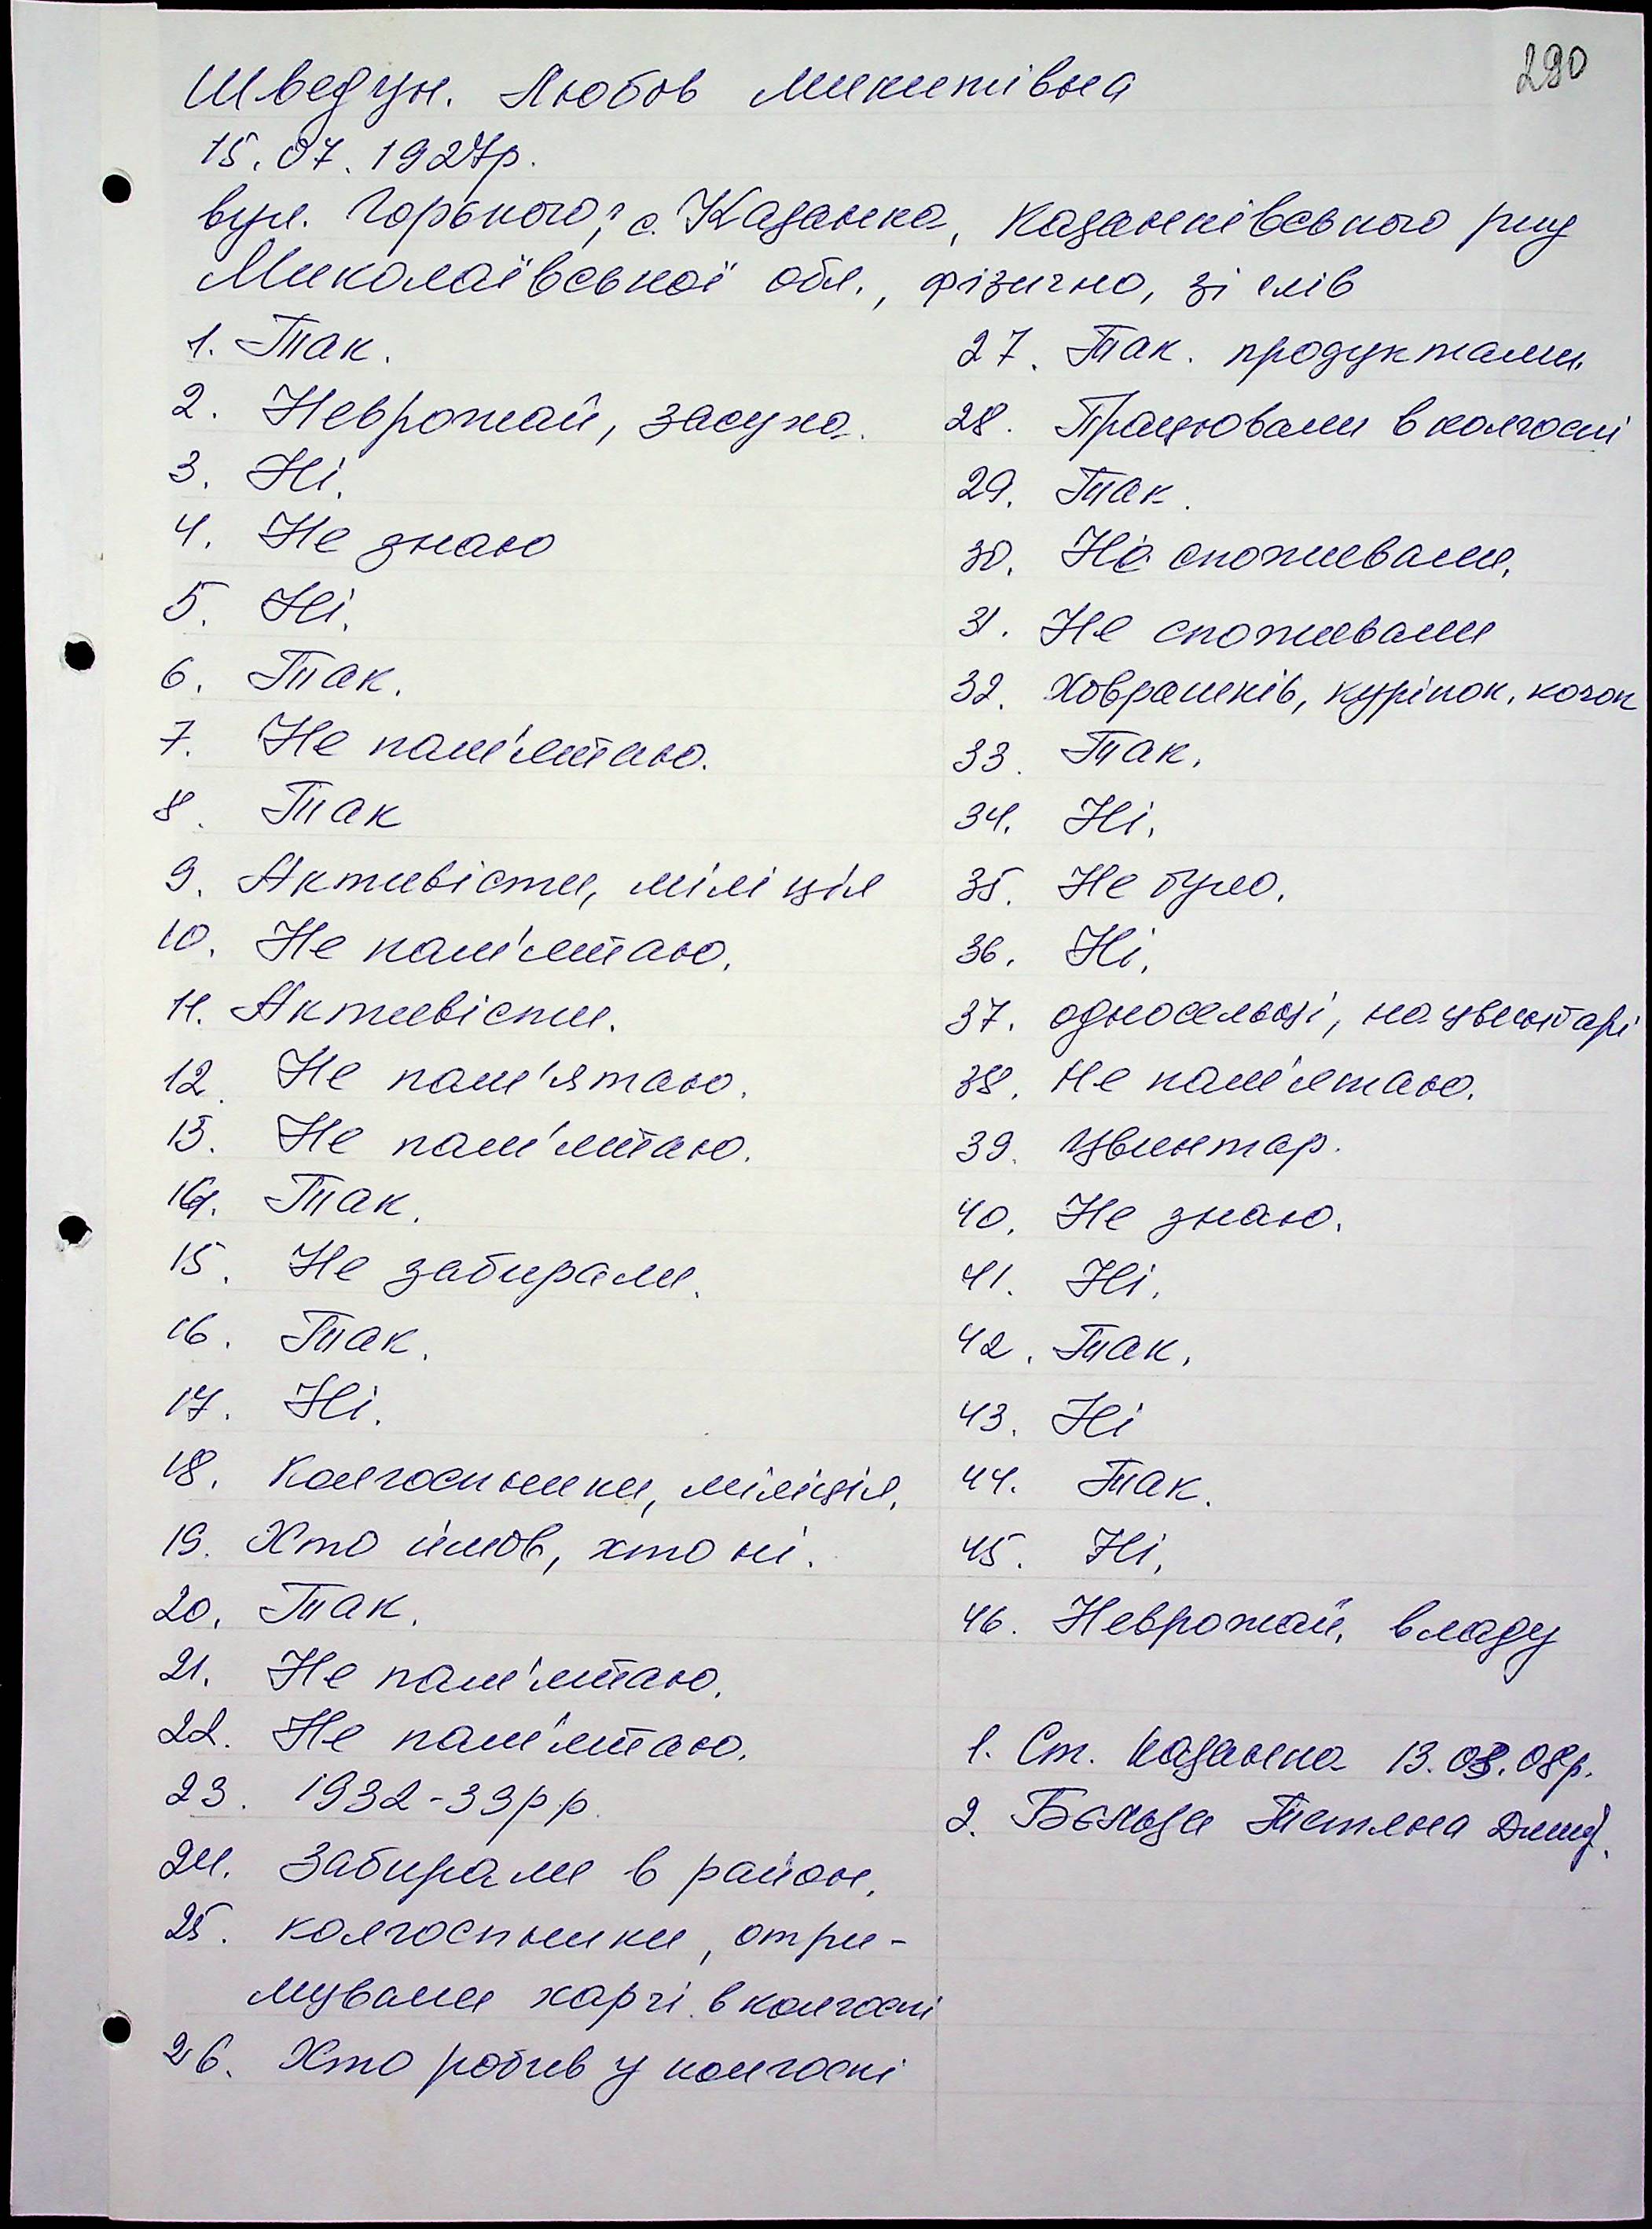 290
Шведун. Любов Микитівна
15.07.1927р.
вул. Горького, с. Казанка, Казанківського р-ну
Миколаївської обл., фізично, зі слів
1. Так.
2. Неврожай, засуха.
3. Ні.
4. Не знаю
5. Ні.
6. Так.
7. Не пам'ятаю.
8. Так
9. Активісти, міліція
10. Не пам'ятаю.
11. Активісти.
12. Не пам'ятаю.
13. Не пам'ятаю.
14. Так.
15. Не забирали.
16. Так.
17. Ні.
18. Колгоспники, міліція.
19. Хто йшов, хто ні.
20. Так.
21. Не пам'ятаю.
22. Не пам'ятаю.
23. 1932-33р.р.
24. Забирали в район.
25. Колгоспники, отри-
мували харчі в колгоспі
26. Хто робив у колгоспі
27. Так. продуктами.
28. Працювали в колгоспі
29. Так.
30. Не споживали.
31. Не споживали
32. Ховрашків, курінок, качок
33. Так.
34. Ні.
35. Не було.
36. Ні.
37. односельці, на цвинтарі
38. Не пам'ятаю.
39. Цвинтар.
40. Не знаю.
41. Ні.
42. Так.
43. Ні
44. Так.
45. Ні.
46. Неврожай, владу
1. Ст. Казанка 13.03.08р.
2. Тетяна Дмит.